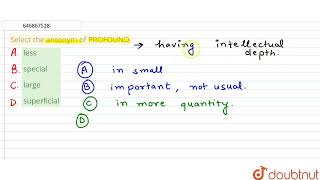 646867518
Select the antonym of PROFOUND. → having intellectual depth.
A. less
B. special
C. large
D. superficial
A in small
B important, not usual.
C in more quantity.
D
doubtnut